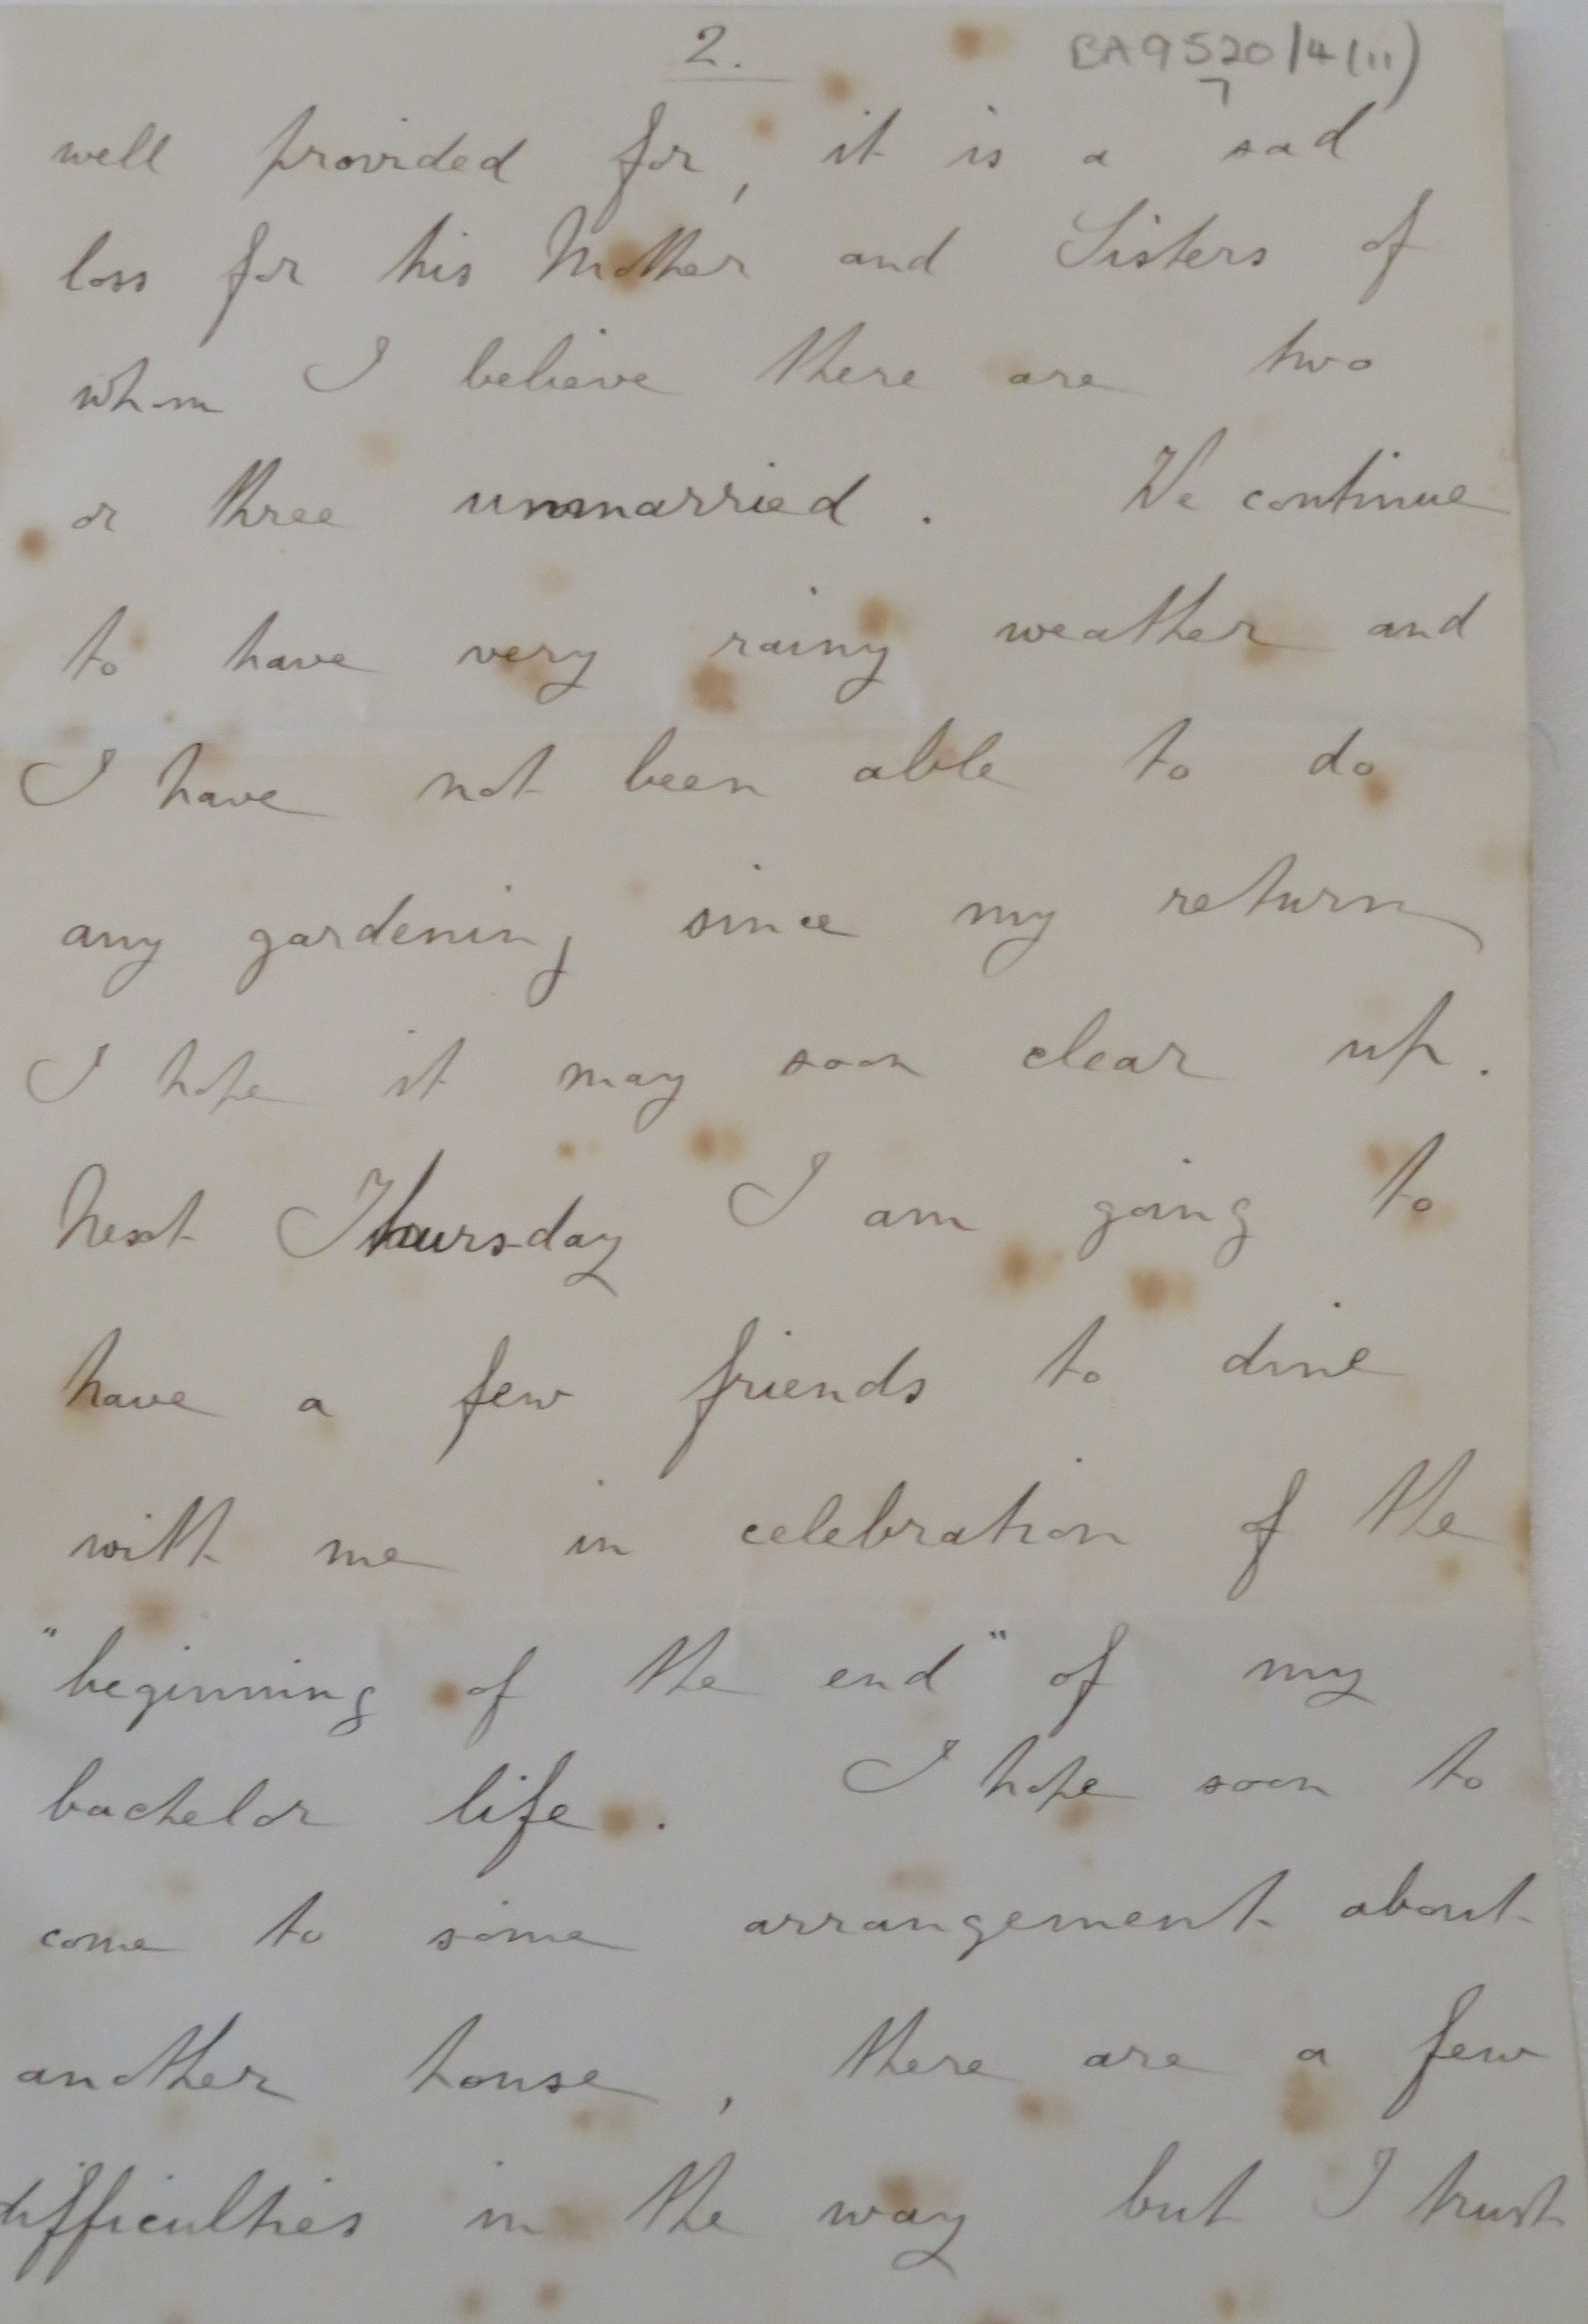 2.
BA9520/4(11)
7
well provided for, it is a sad
loss for his Mother and Sisters of
whom I believe there are two
or three unmarried. We continue
to have very rainy weather and
I have not been able to do
any gardening since my return
I hope it may soon clear up.
Next Thursday I am going to
have a few friends to dine
with me in celebration of the
"beginning of the end" of my
bachelor life. I hope soon to
come to some arrangement about
another house, there are a few
difficulties in the way but I trust